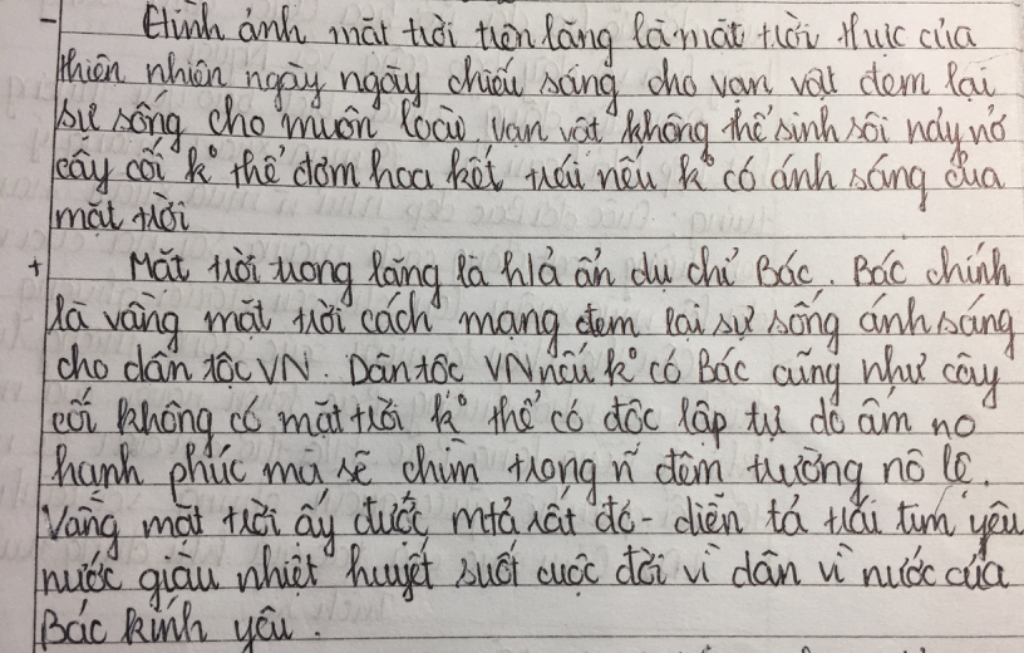 - Hình ảnh mặt trời trên lăng là mặt trời thực của
thiên nhiên ngày ngày chiếu sáng cho vạn vật đem lại
sự sống cho muôn loài, vạn vật không thể sinh sôi nảy nở
cây cối k° thể đơm hoa kết trái nếu k° có ánh sáng của
mặt trời
+ Mặt trời trong lăng là h/ả ẩn dụ chỉ Bác. Bác chính
là vầng mặt trời cách mạng đem lại sự sống ánh sáng
cho dân tộc VN. Dân tộc VN nếu k° có Bác cũng như cây
cối không có mặt trời k° thể có độc lập tự do ấm no
hạnh phúc mà sẽ chìm trong n~ đêm trường nô lệ.
Vầng mặt trời ấy được mtả rất đỏ - diễn tả trái tim yêu
nước giàu nhiệt huyết suốt cuộc đời vì dân vì nước của
Bác kính yêu.